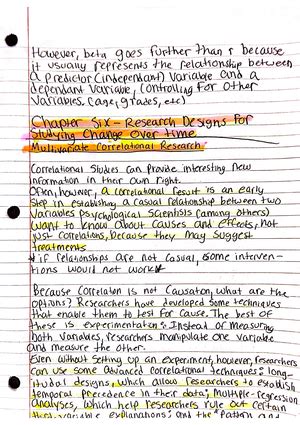 However, beta goes further than r because
it usually represents the relationship between
a predictor (independant) variable and a
dependant variable, controlling for other
variables (age, grades, etc)
Chapter Six - Research Designs For
Studying Change Over time
Multivariate Correlational Research
Correlational Studies can provide interesting new
information in their own right.
Often, however, a correlational result is an early
Step in establishing a casual relationship between two
variables. Psychological Scientists (among others)
want to know about causes and effects, not
just correlations, because they may suggest
treatments
*if relationships are not casual, some interven-
tions would not work*
Because correlation is not causation, what are the
options? Researchers have developed some techniques
that enable them to test for cause. The best of
these is experimentation: Instead of measuring
both variables, researchers manipulate one variable
and measure the other.
Even without setting up an experiment, however, researchers
can use some advanced correlational techniques: long-
itudal designs, which allow researchers to establish
temporal precedence in their data; Multiple-regression
analyses, which help researchers rule out certain
third variable explanations; and the "pattern and